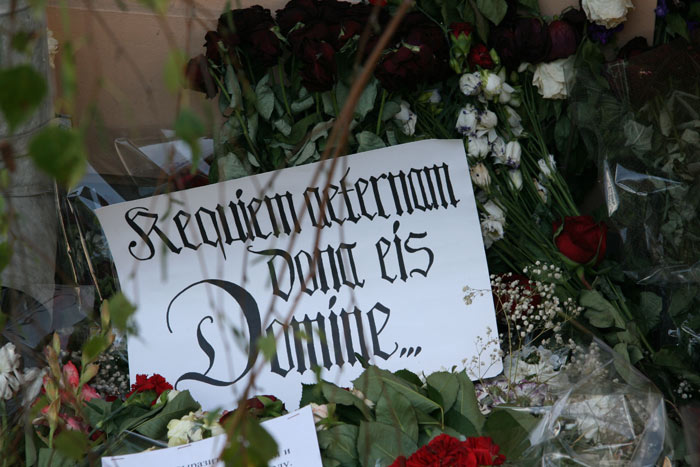 Requiem aeternam
dona eis
Domine...